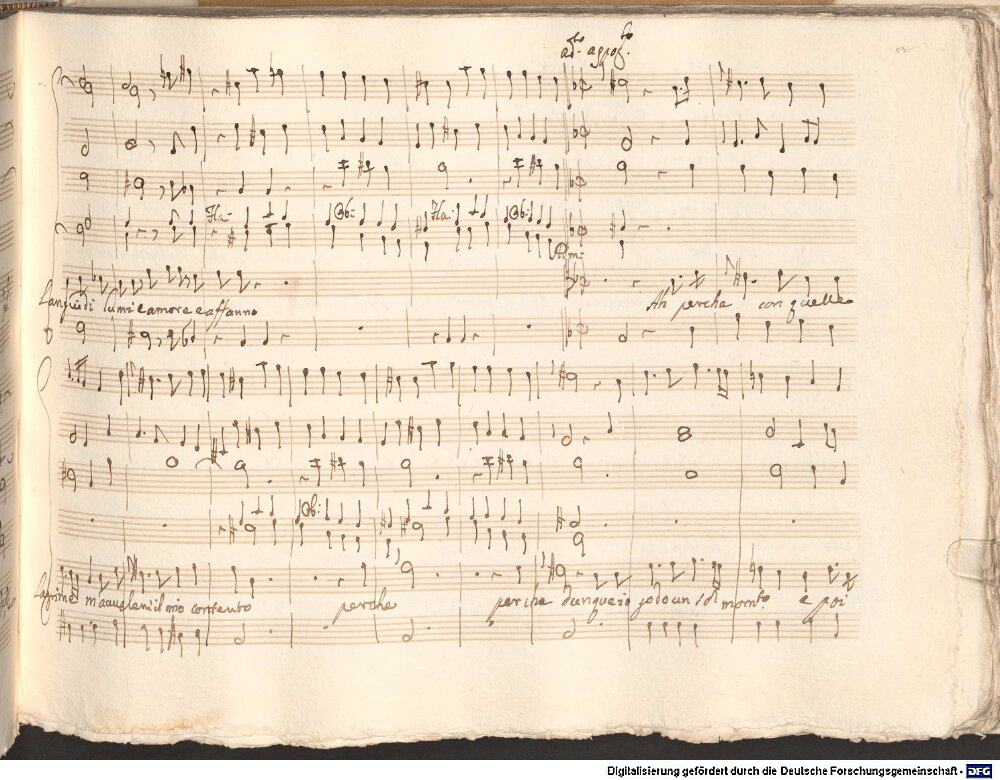 Fla: Ob: Fla: Ob:
Languidi lumi e amore e affanno Ah perche con quelle
Ob:
lagrime m'avveleni il mio contento perche perche dunque io godo un sol mom.to e poi
Digitalisierung gefördert durch die Deutsche Forschungsgemeinschaft - DFG